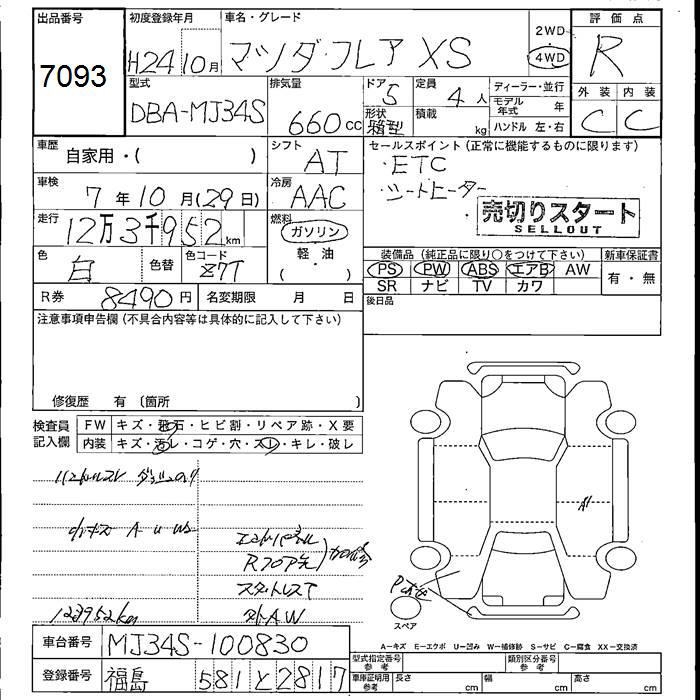 出品番号
7093
初度登録年月
H24 10月
車名・グレード
マツダ・フレア XS
2WD
4WD
評価点
R
型式
DBA-MJ34S
排気量
660cc
ドア
5
形状
箱型
定員
4人
積載
kg
ディーラー・並行
モデル年式 年
ハンドル 左・右
外装 内装
C C
車歴
自家用・( )
シフト
AT
セールスポイント(正常に機能するものに限ります)
・ETC
・シートヒーター
売切りスタート
SELLOUT
車検
7年10月(29日)
冷房
AAC
走行
12万3千952km
燃料
ガソリン
軽・油
( ・ )
色
白
色替
色コード
Z7T
装備品(純正品に限り○をつけて下さい)
PS PW ABS エアB AW
SR ナビ TV カワ
新車保証書
有・無
R券 8490円
名変期限 月 日
後日品
注意事項申告欄(不具合内容等は具体的に記入して下さい)
修復歴 有(箇所
検査員記入欄
FW キズ・飛石・ヒビ割・リペア跡・X要
内装 キズ・汚レ・コゲ・穴・スレ・キレ・破レ
小キズ A U W5
エンドパネル
Rフロア先
スタットレスT
123952km
外AW
A1
Pむ
スペア
A-キズ E-エクボ U-凹み W-補修跡 S-サビ C-腐食 XX-交換済
車台番号 MJ34S-100830
登録番号 福島 581と2817
型式指定番号 参考
類別区分番号 参考
車庫証明用 参考
長さ cm 幅 cm 高さ cm